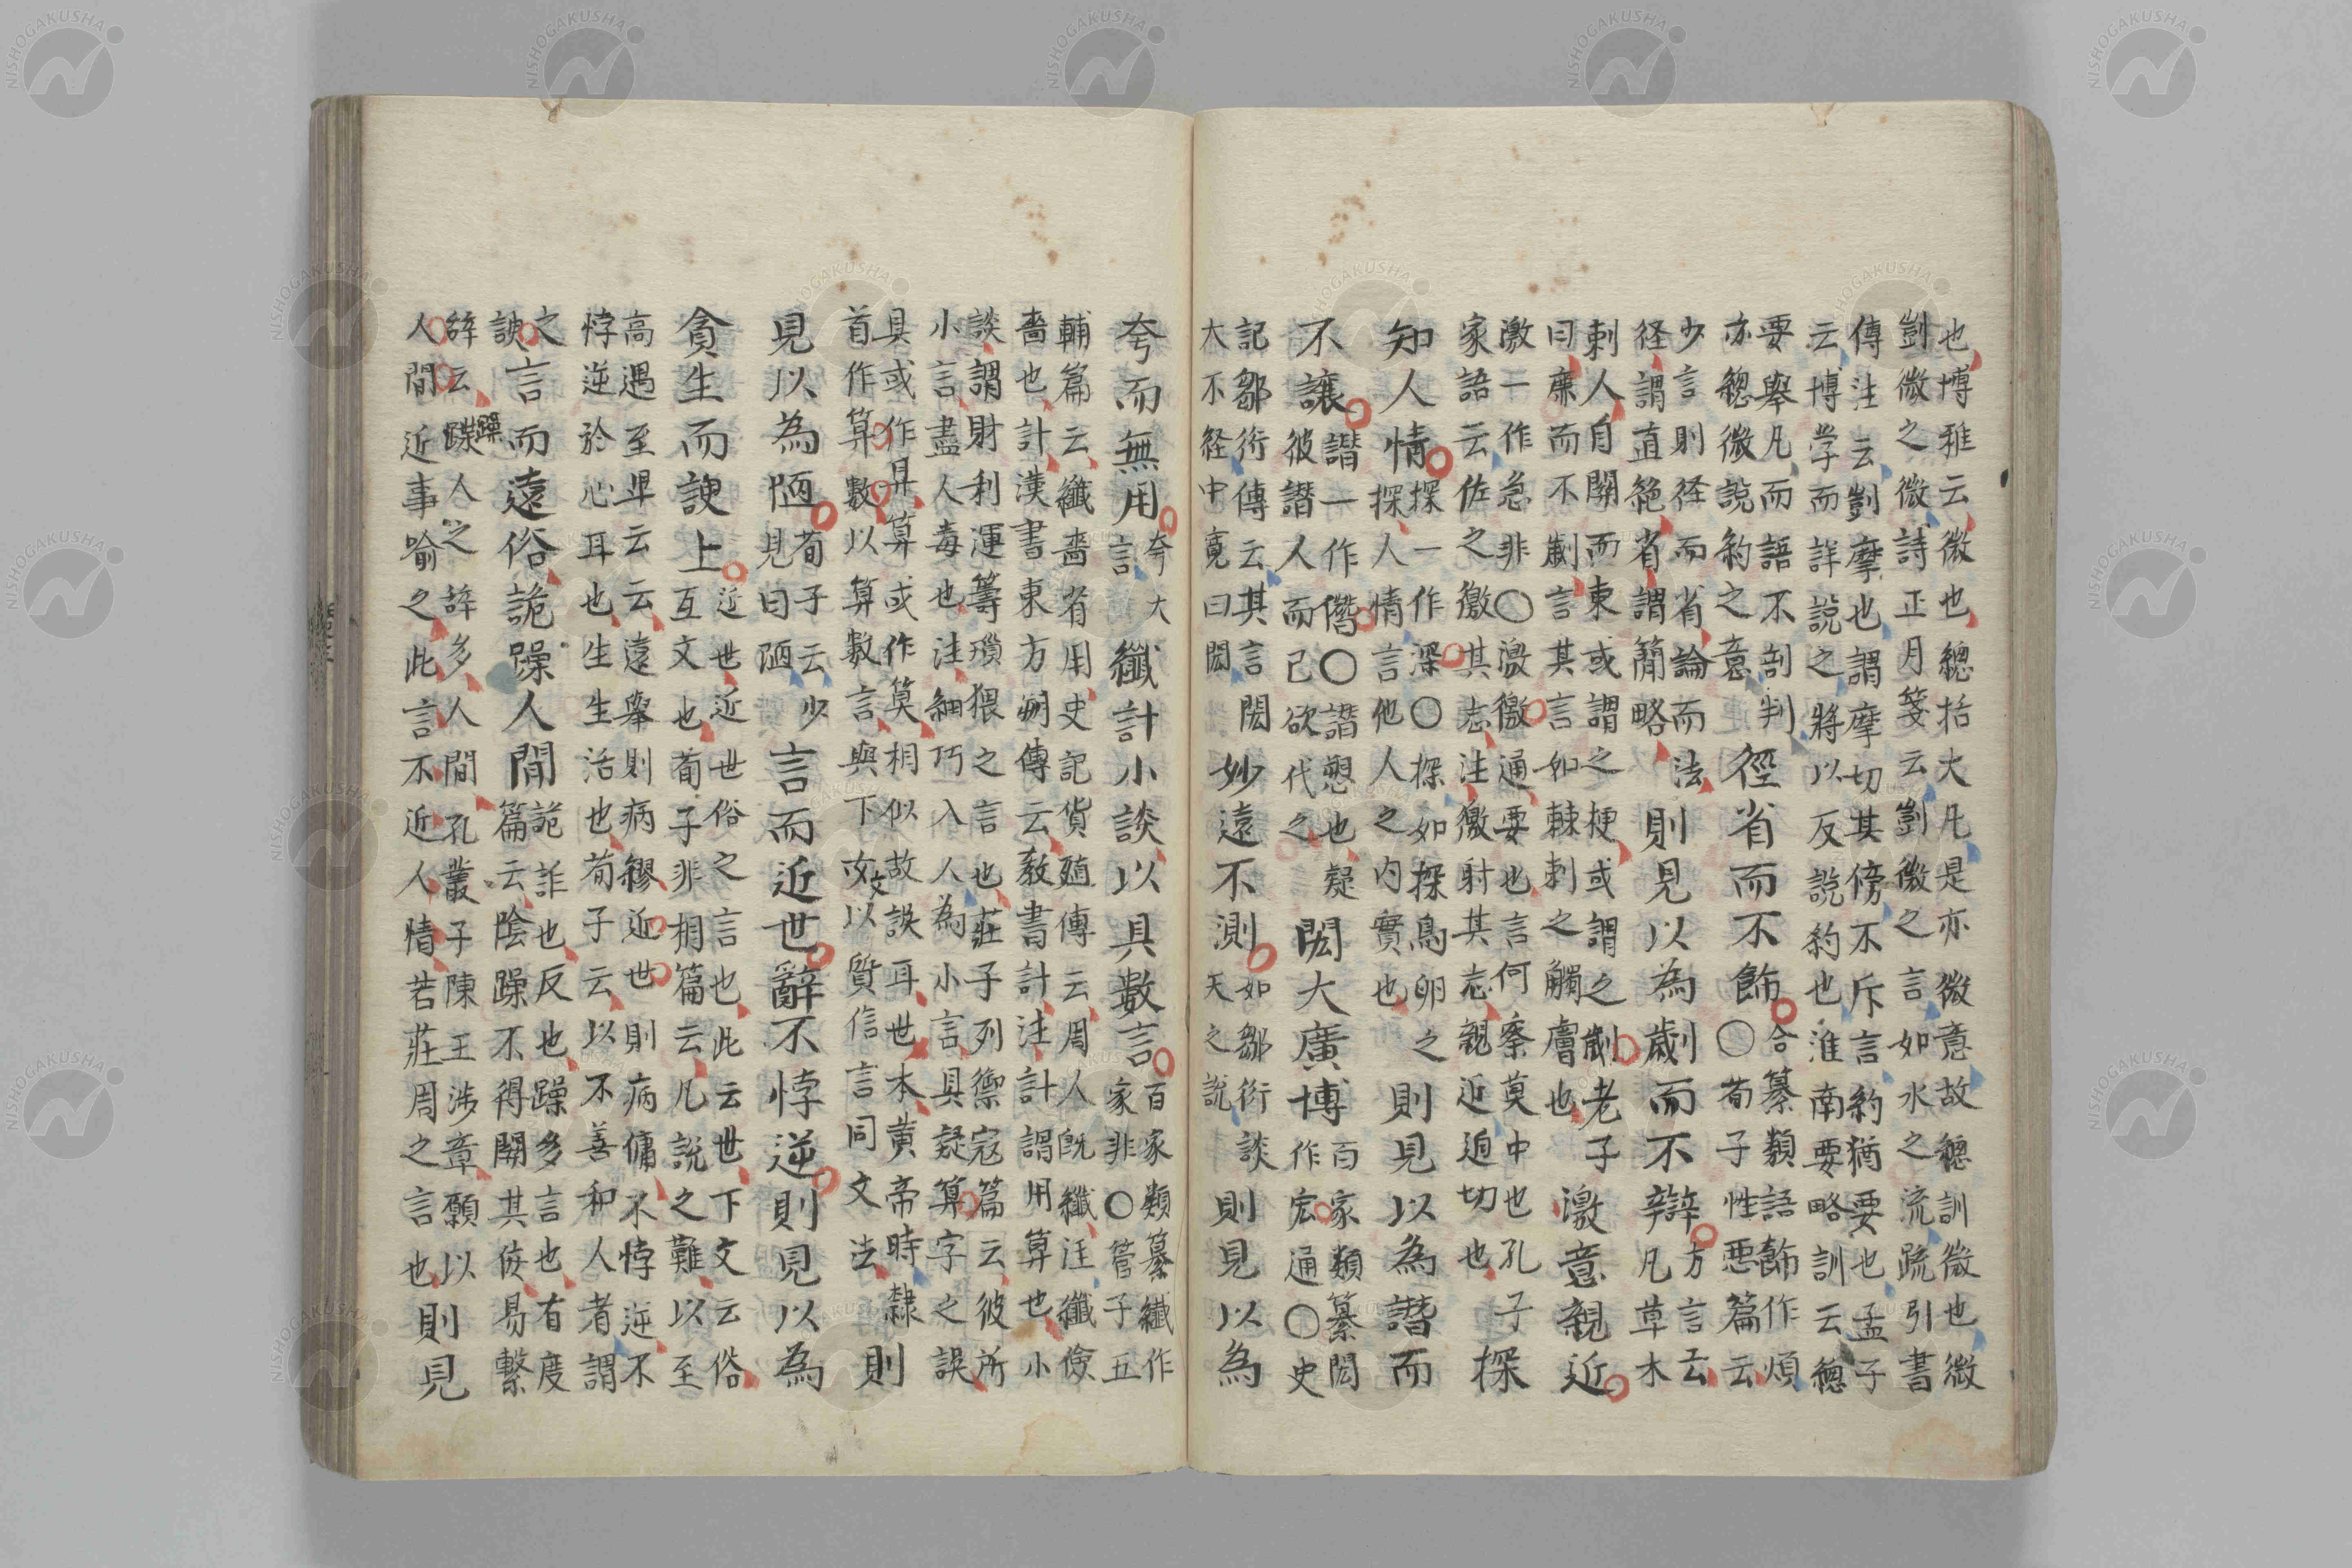 也博雅云微也總括大凡是亦微意故總訓微也微
剴微之微詩正月箋云剴微之言如水之流疏引書
傳注云剴摩也謂摩切其傍不斥言約猶要也孟子
云博学而詳說之將以反說約也淮南要略訓云總
要舉凡而語不剖判
亦總微說約之意
徑省而不飾
合纂類語飾作煩
〇荀子性悪篇云
少言則径而省論而法
径謂直絶省謂簡略
則見以為劌而不辯
方言云
凡草木
刺人自關而東或謂之梗或謂之劌老子
曰廉而不劌言其言如棘刺之觸膚也
激意親近
激一作急非〇激徼通要也言何察莫中也孔子
家語云佐之徼其志注徼射其志親近迫切也
探
知人情
探一作深〇探如探鳥卵之
探人情言他人之內實也
則見以為譖而
不讓
譖一作僭〇譖愬也疑
彼譖人而己欲代之
閎大廣博
百家類纂閎
作宏通〇史
記鄒衍傳云其言閎
大不経中竟曰閎
妙遠不測
如鄒衍談
天之說
則見以為
夸而無用
夸大
言
纖計小談以具數言
百家類纂纖作
家非〇管子五
輔篇云纖嗇省用史記貨殖傳云周人既纖注纖儉
嗇也計漢書東方朔傳云教書計注計謂用算也小
談謂財利運籌瑣猥之言也莊子列禦寇篇云彼所
小言盡人毒也注細巧入人為小言具疑算字之誤
具或作算或作莫相似故誤耳世本黄帝時隸
首作算數以算數言與下文以質信言同文法
則
見以為陋
荀子云少
見曰陋
言而近世辭不悖逆則見以為
貪生而諛上
近世近世俗之言也此云世下文云俗
互文也荀子非相篇云凡說之難以至
高遇至卑云云遠舉則病繆近世則病傭不悖逆不
悖逆於心耳也生生活也荀子云以不善和人者謂
之
諛
言而遠俗詭躁人間
詭詐也反也躁多言也有度
篇云陰躁不得關其佞易繫
辞云躁人之辞多人間孔叢子陳王涉章願以
人間近事喻之此言不近人情若莊周之言也
則見